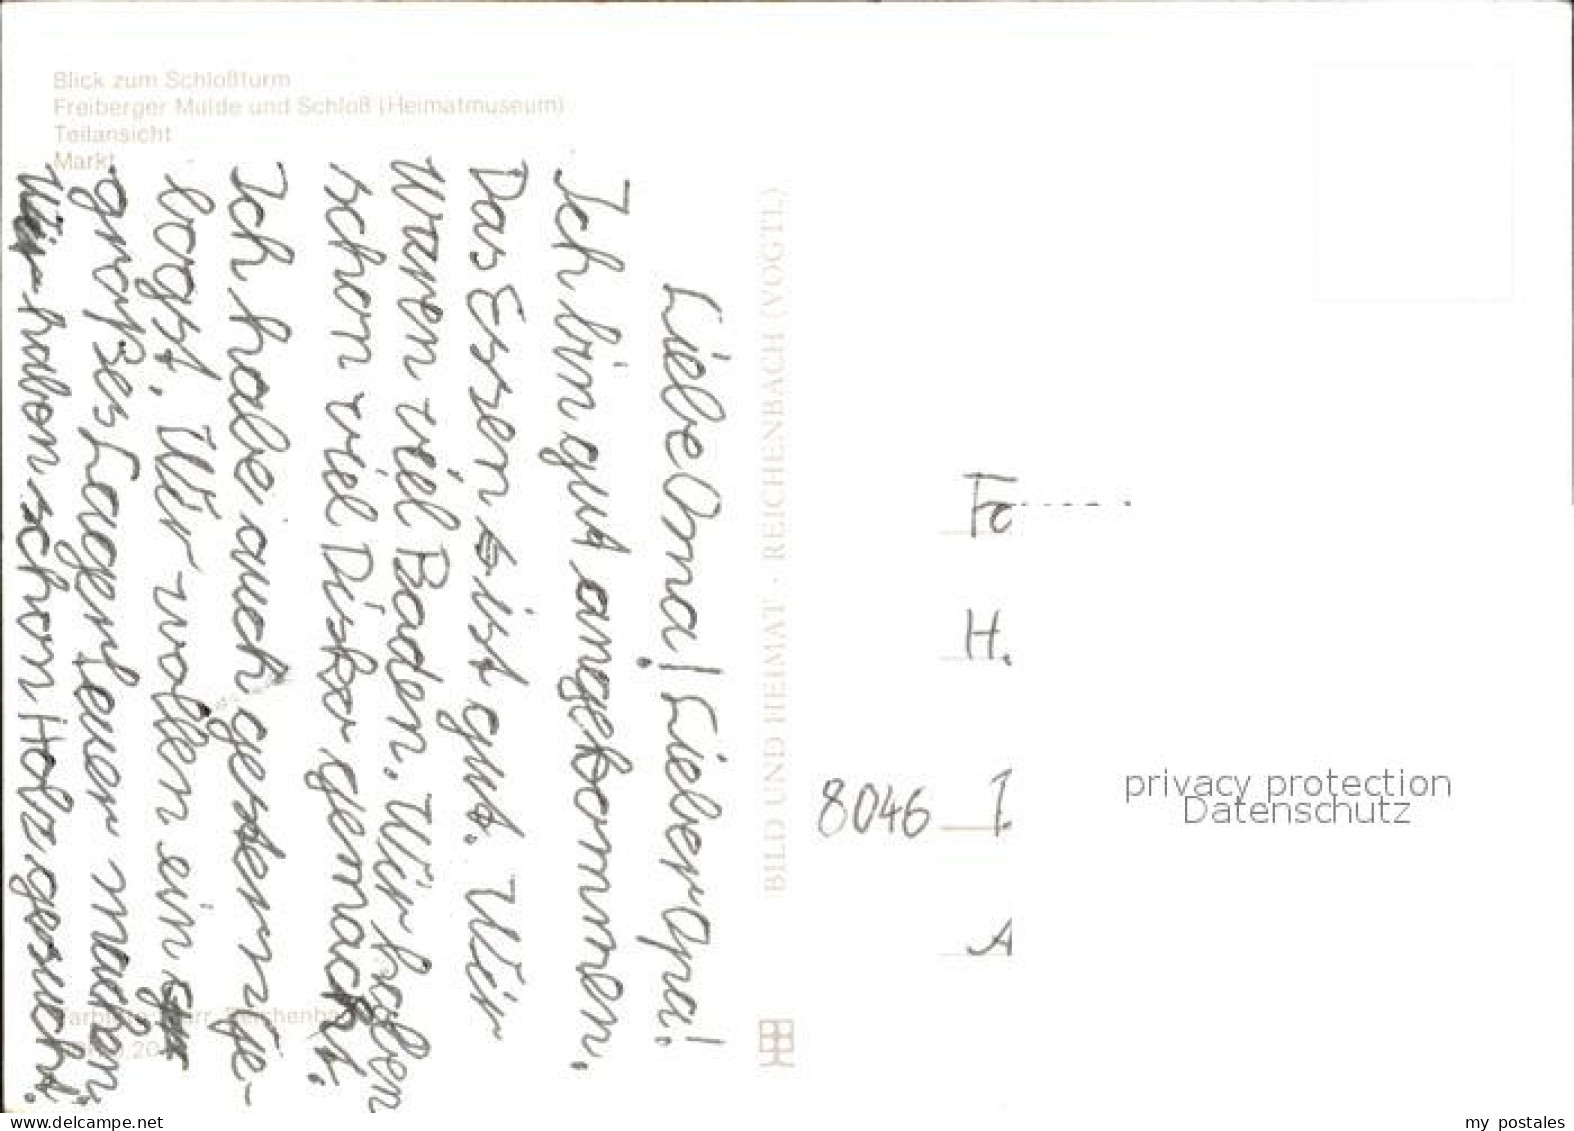 Blick zum Schloßturm
Freiberger Mulde und Schloß (Heimatmuseum)
Teilansicht
Markt
Liebe Oma! Lieber Opa!
Ich bin gut angekommen.
Das Essen ist gut. Wir
waren viel Baden. Wir haben
schon viel Disko gemacht.
Ich habe auch gestern ge-
bogst. Wir wollen ein
großes Lagerfeuer machen.
Wir haben schon Holz gesucht.
Reichenbach
BILD UND HEIMAT · REICHENBACH (VOGTL)
H.
8046 I.
A
privacy protection
Datenschutz
delcampe.net
my_postales